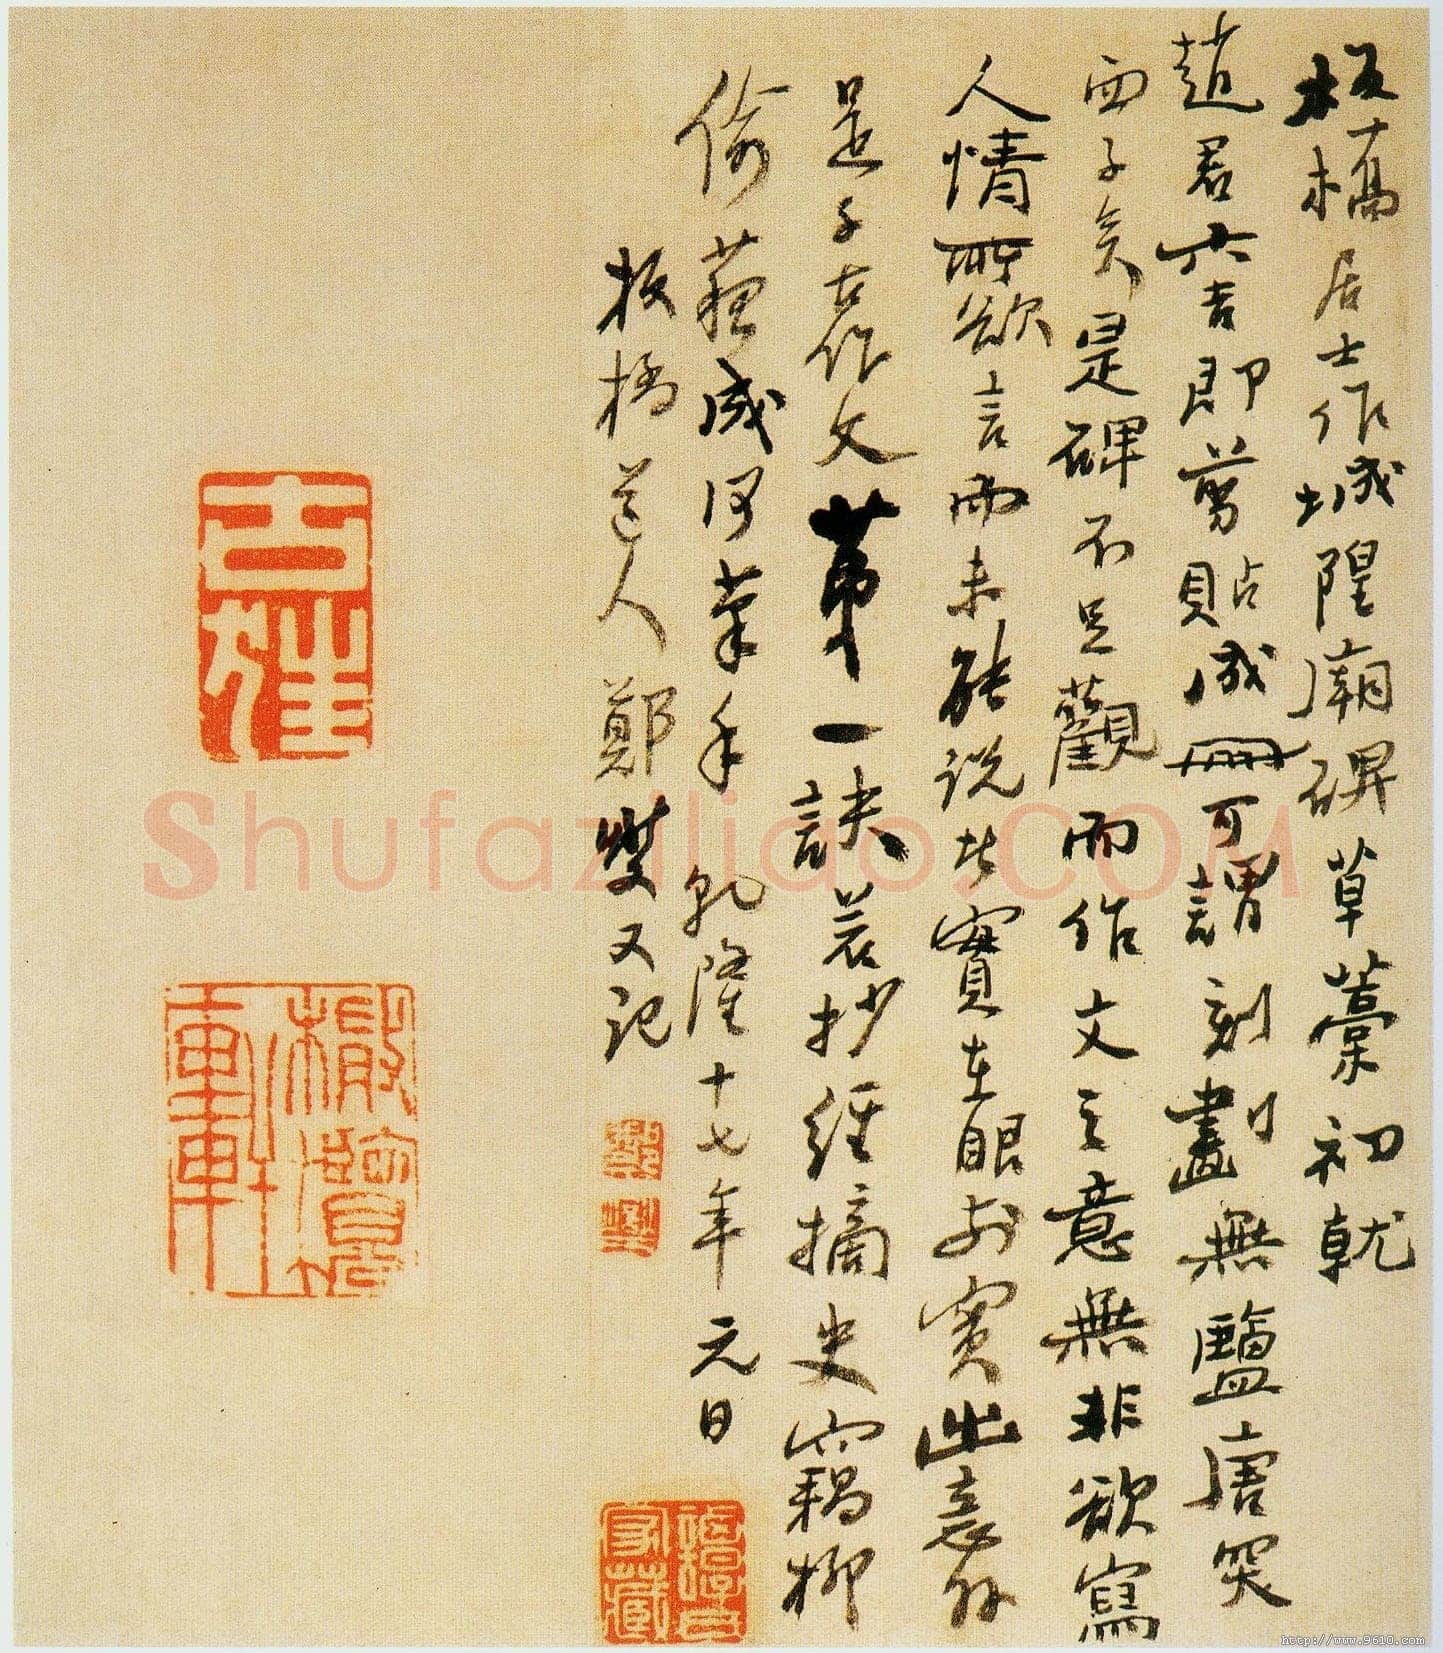 板橋居士作城隍廟碑草藁初就
趙君六吉即剪貼成冊可謂刻劃無鹽唐突
西子矣是碑不足觀而作文之意無非欲寫
人情所欲言而未能說者實在眼前實出意外
是千古作文第一訣若抄經摘史竊柳
偷蘇成何筆手乾隆十七年元日
板橋道人鄭燮又記
shufaziliao.COM
http://www.9610.com